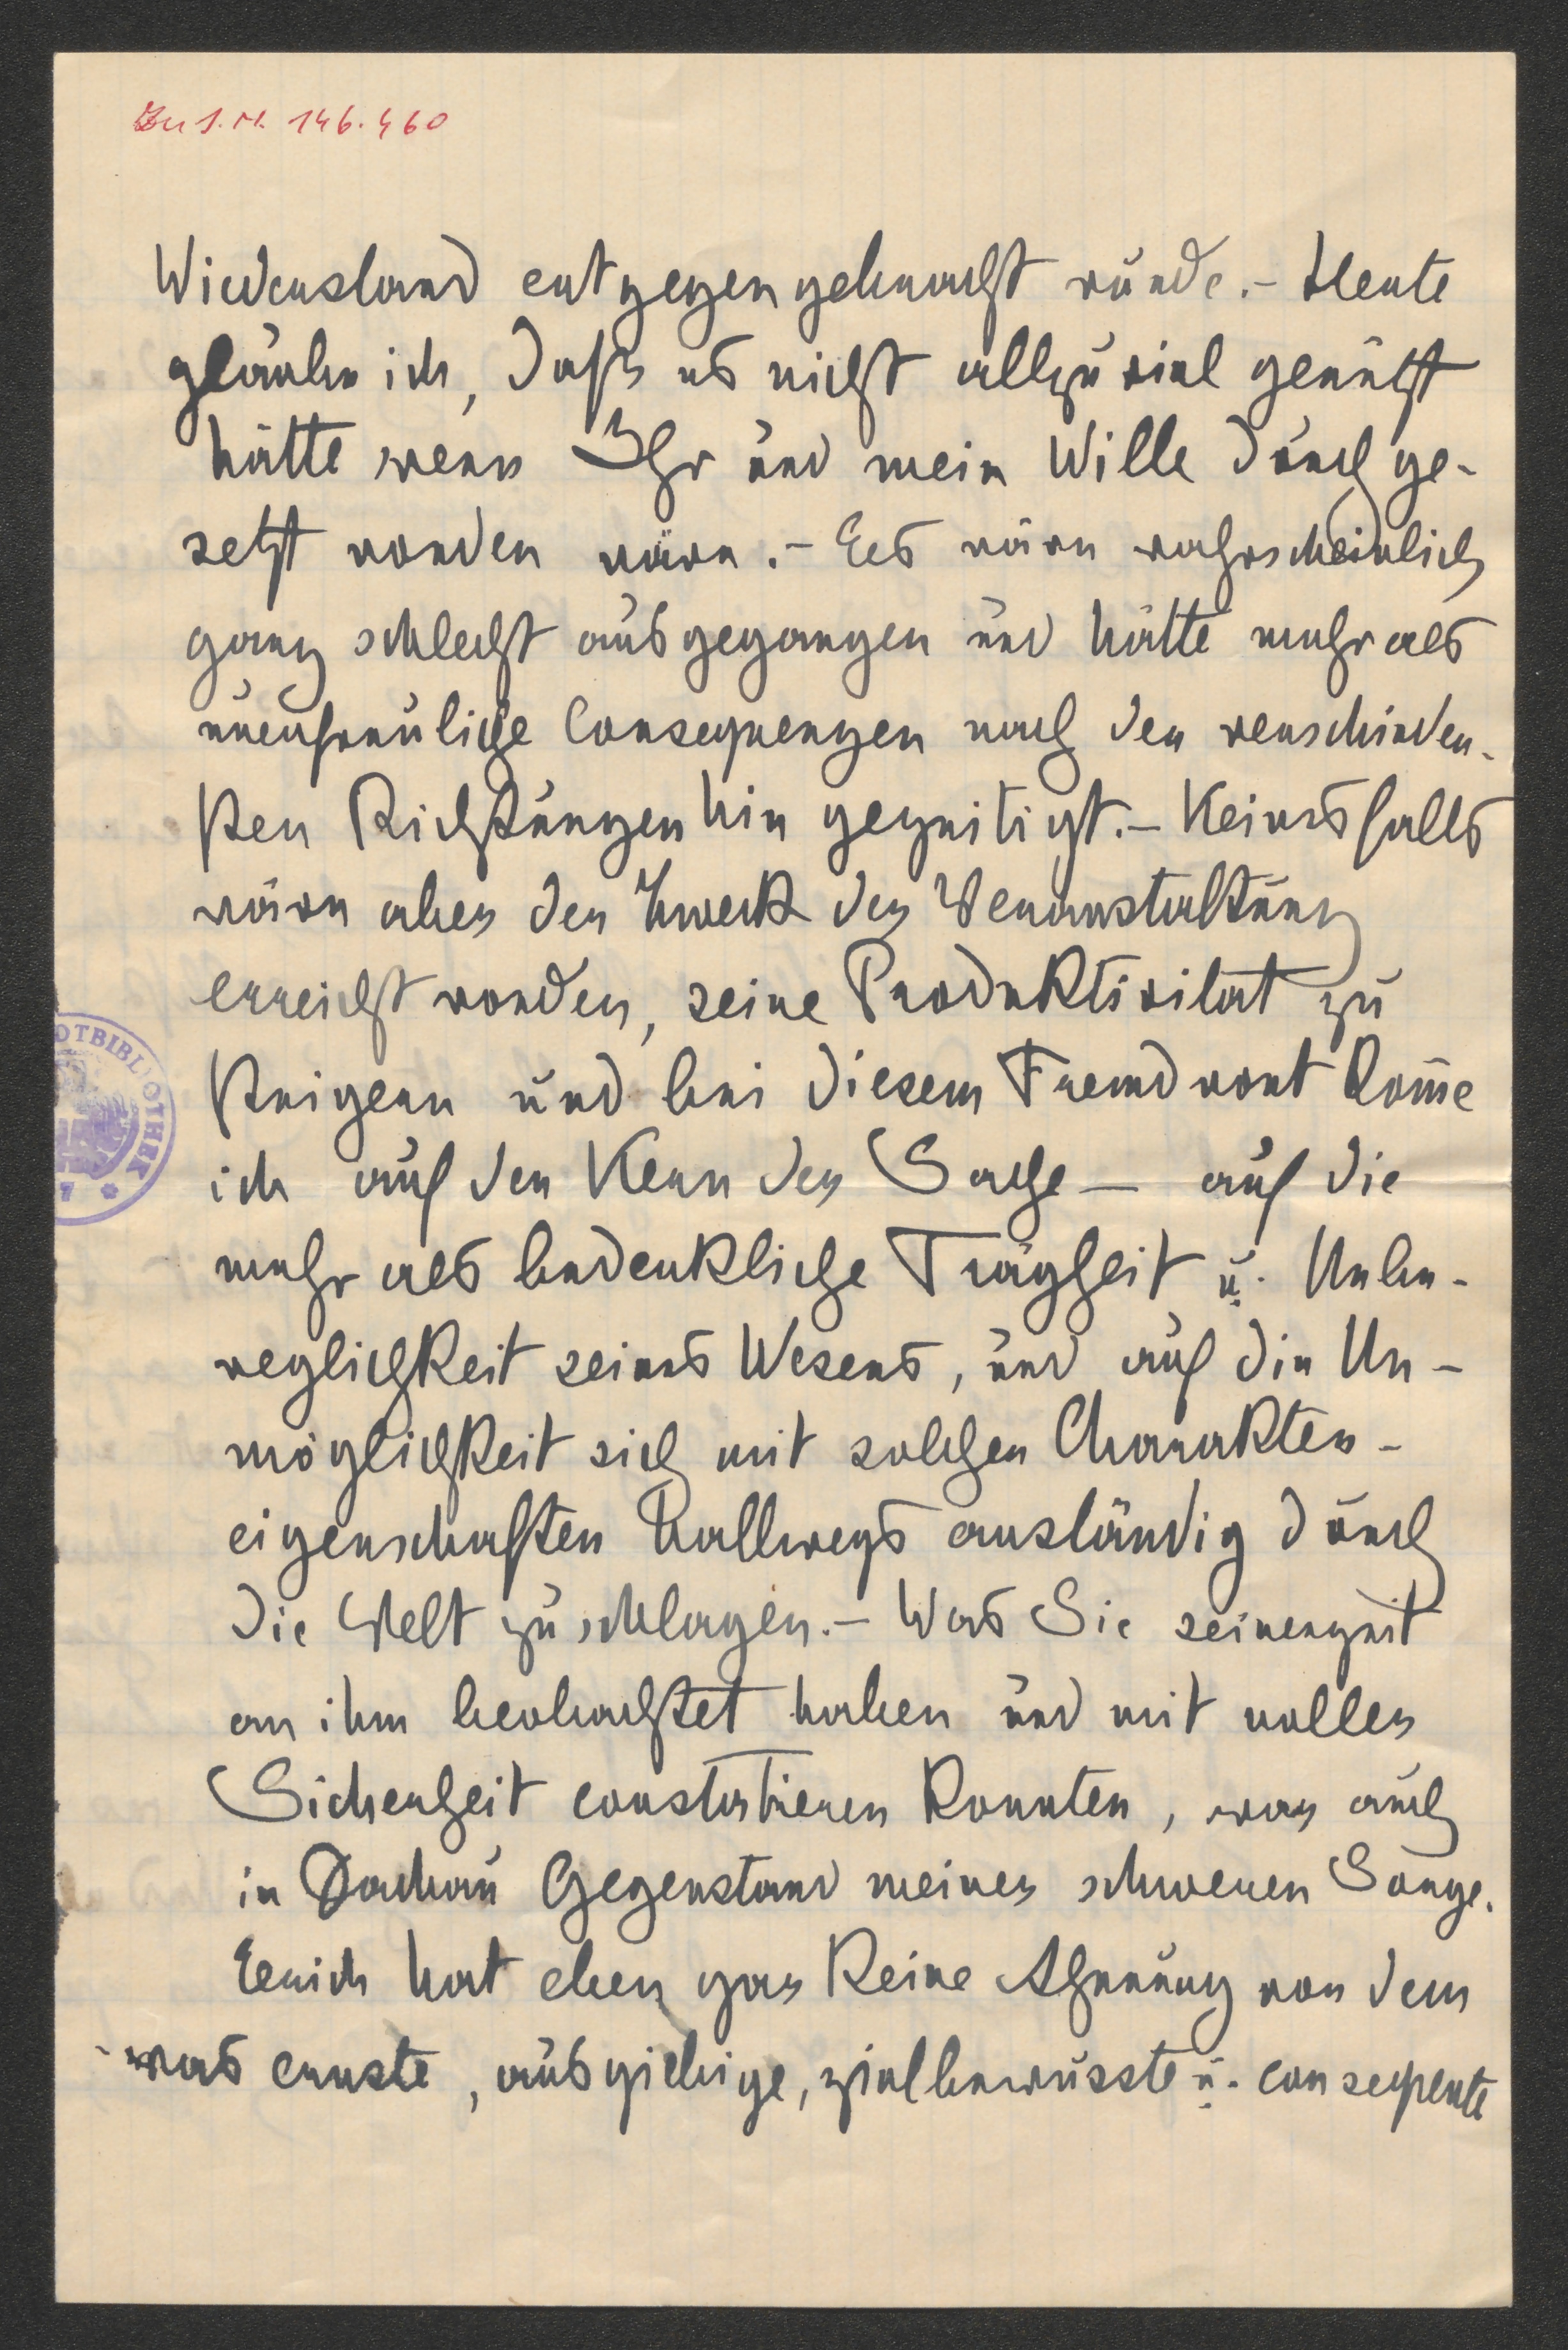 Zu I.N. 146.460
Widerstand entgegengebracht würde.- Heute
glaube ich, dass es nicht allzuviel genützt
hätte wenn Ihr und mein Wille durchge-
setzt worden wäre.- Es wäre wahrscheinlich
ganz schlecht ausgegangen und hätte mehr als
unerfreuliche Consequenzen nach den verschieden-
sten Richtungen hin gezeitigt.- Keinesfalls
wäre aber der Zweck der Veranstaltung
erreicht worden, seine Produktivität zu
steigern und bei diesem Fremdwort kom̄e
ich auf den Kern der Sache — auf die
mehr als bedenkliche Trägheit u. Unbe-
weglichkeit seines Wesens, und auf die Un-
möglichkeit sich mit solchen Charakter-
eigenschaften halbwegs anständig durch
die Welt zu schlagen.- Was Sie seinerzeit
an ihm beobachtet haben und mit voller
Sicherheit constatieren konnten, war auch
in Dachau Gegenstand meiner schweren Sorge.
Erich hat eben gar keine Ahnung von dem
was ernste, ausgiebige, zielbewusste u. consequente
OTBIBLIOTHEK